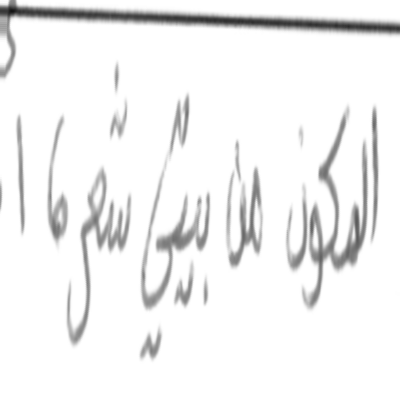 المكون من بيتي شعر ٦ ا